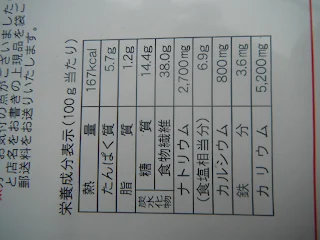 お気付の点がございました
と店名をお書きの上現品を袋ご
郵送料をお送りいたします。
栄養成分表示(100g当たり)
熱量 167kcal
たんぱく質 5.7g
脂質 1.2g
炭水化物 糖質 14.4g
食物繊維 38.0g
ナトリウム 2,700mg
(食塩相当分) 6.9g
カルシウム 800mg
鉄分 3.6mg
カリウム 5,200mg